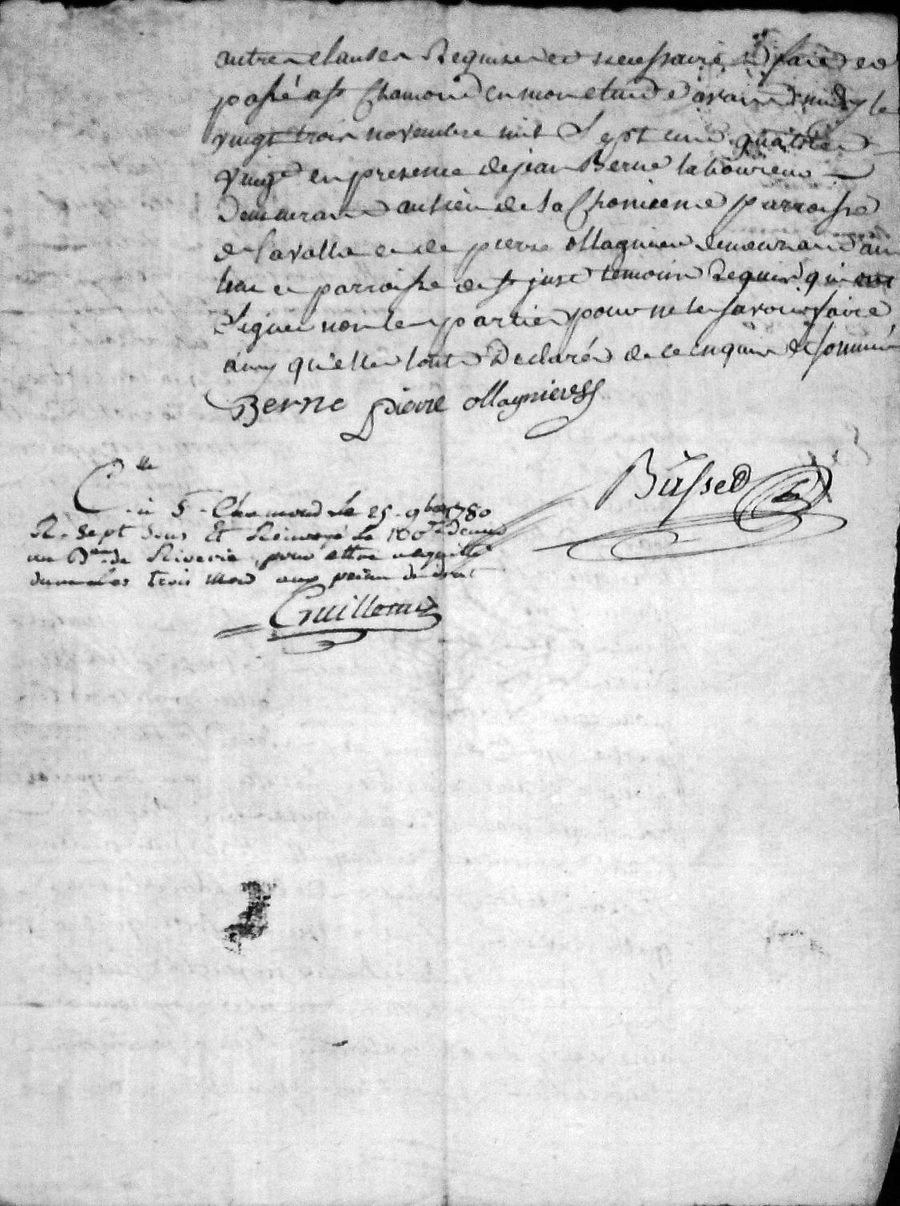 autres clauses Requises et necessaire fait et
passé a st Chamond en mon etude avant midy le
vingt trois novembre mil Sept cent quattre
vingt en presence de jean Berne laboureur
demeurant au lieu de la parroisse
de Lavalla et de pierre ollagnier demeurant au
lieu et parroisse de st just temoins Requis qui ont
Signé non les parties pour ne le savoir faire
ainsy qu'elles l'ont Declaré de ce enquis et sommé
Berne pierre ollagnier
Bussed
C.lle
à St Chamond Le 25 9bre 1780
R. sept sous Et Renvoyé Le 100me denier
au B.eau de Riverie pour être acquitté
dans les trois mois aux peines de droit
Guillomin